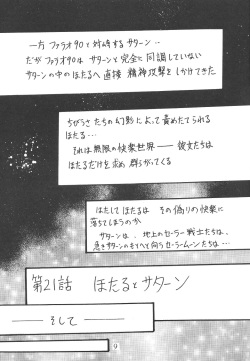 一方 ファラオ90と対峙するサターン…
だが ファラオ90は サターンと完全に同調していない
サターンの中のほたるへ直接 精神攻撃をしかけてきた
ちびうさたちの幻影によって責めたてられる
ほたる…
それは無限の快楽世界── 彼女たちは
ほたるだけを求め 群がってくる
はたして ほたるは その偽りの快楽に
落ちてしまうのか
サターンは、地上のセーラー戦士たちは、
急ぎサターンのもとへと向うセーラームーンたちは…
第21話 ほたるとサターン
──── そして ────
9